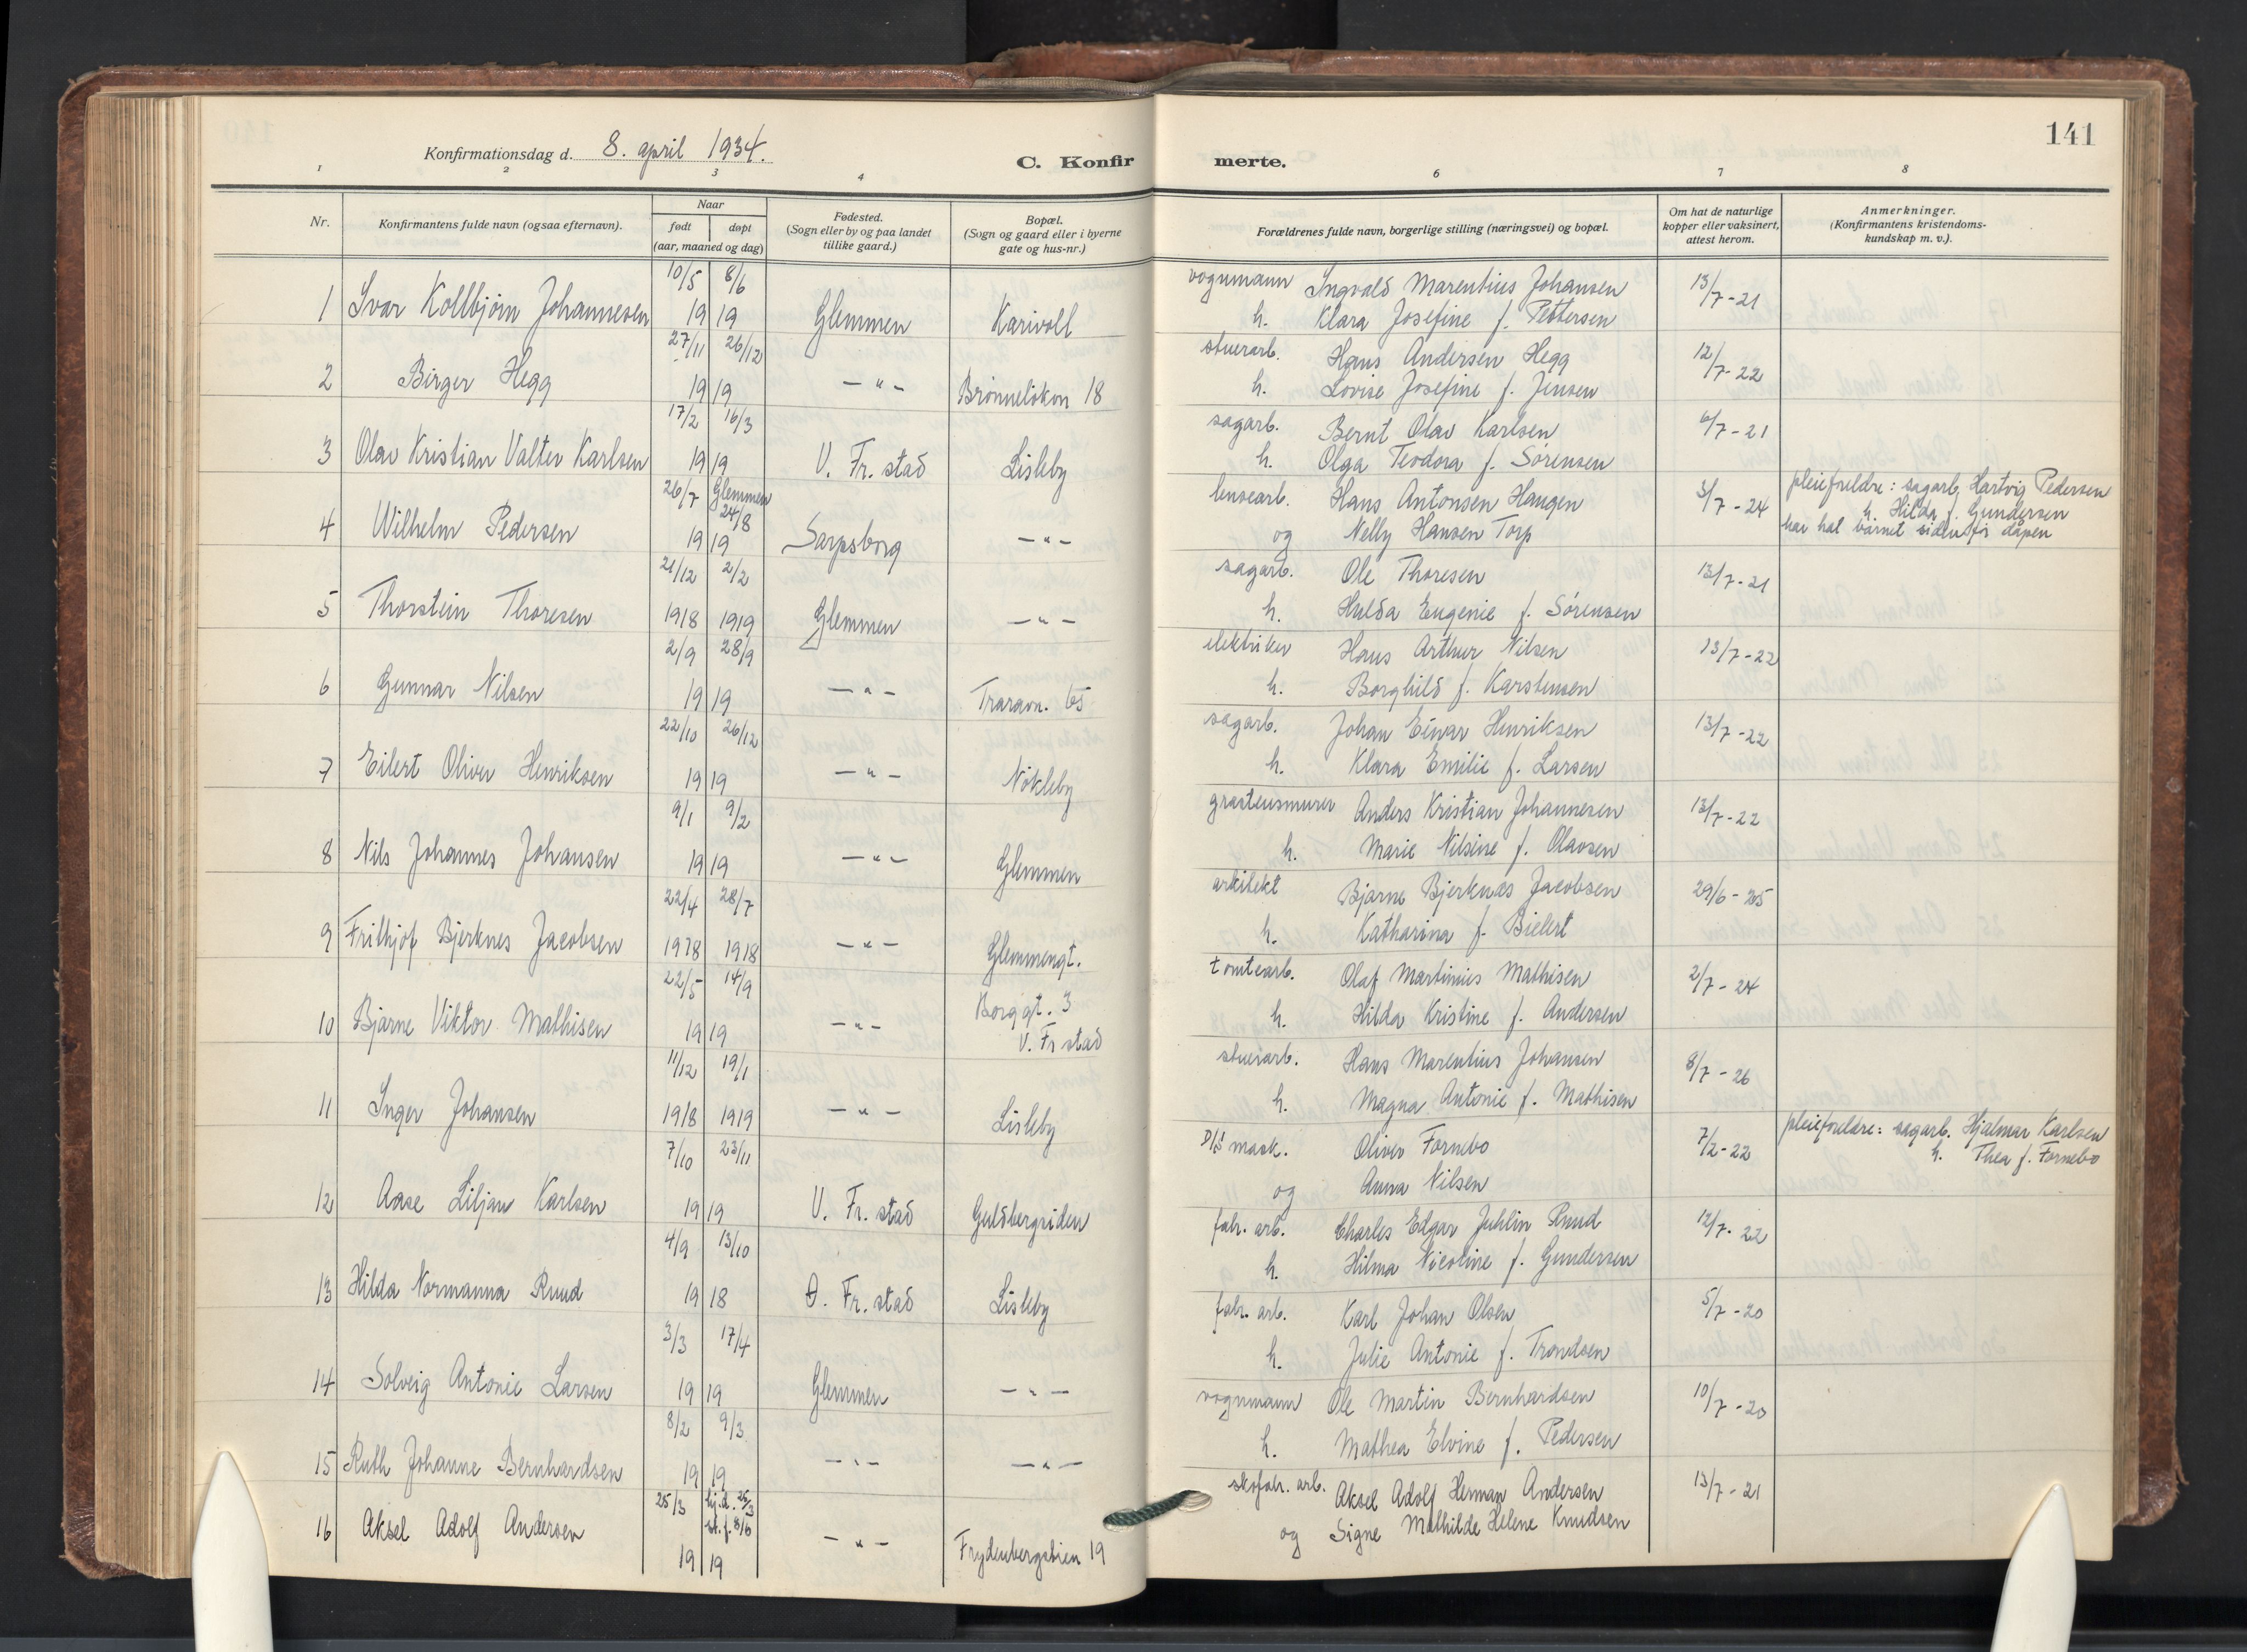 141
Konfirmationsdag d. 8. april 1934.
C. Konfirmerte.
1 2 3 4 6 7 8
Nr.
Konfirmantens fulde navn (ogsaa efternavn).
Naar
født døpt
(aar, maaned og dag)
Fødested.
(Sogn eller by og paa landet
tillike gaard.)
Bopæl.
(Sogn og gaard eller i byerne
gate og hus-nr.)
Forældrenes fulde navn, borgerlige stilling (næringsvei) og bopæl.
Om hat de naturlige
kopper eller vaksinert,
attest herom.
Anmerkninger.
(Konfirmantens kristendoms-
kundskap m. v.).
10/5 8/6 vognmann Ingvald Marentius Johansen 13/7-21
1 Ivar Kollbjørn Johannesen 19 19 Glemmen Karivoll h. Klara Josefine f. Pettersen
27/11 26/12 stuerarb. Hans Andersen Hegg 12/7-22
2 Birger Hegg 19 19 -"- Brønneløkon 18 h. Lovise Josefine f. Jensen
17/2 16/3 sagarb. Bernt Olav Karlsen 6/7-21
3 Olav Kristian Valter Karlsen 19 19 V. Fr.stad Lisleby h. Olga Teodora f. Sørensen
26/7 Glemmen 24/8 lensearb. Hans Antonsen Haugen 3/7-24 pleieforeldre: sagarb. Hartvig Pedersen
h. Hilda f. Gundersen
4 Wilhelm Pedersen 19 19 Sarpsborg -"- og Nelly Hansen Torp har hat barnet siden før dåpen
21/12 2/2 sagarb. Ole Thoresen 13/7-21
5 Thorstein Thoresen 1918 1919 Glemmen -"- h. Hulda Eugenie f. Sørensen
2/9 28/9 elektriker Hans Arthur Nilsen 13/7-22
6 Gunnar Nilsen 19 19 -"- Traravn. 65 h. Borghild f. Karstensen
22/10 26/12 sagarb. Johan Einar Henriksen 13/7-22
7 Eilert Oliver Henriksen 19 19 -"- Nøkleby h. Klara Emilie f. Larsen
9/1 9/2 gråstensmurer Anders Kristian Johannesen 13/7-22
8 Nils Johannes Johansen 19 19 -"- Glemmen h. Marie Nilsine f. Olavsen
22/4 28/7 arkitekt Bjarne Bjerknæs Jacobsen 29/6-25
9 Frithjof Bjerknes Jacobsen 1918 1918 -"- Glemmengt. h. Katharina f. Bielert
22/5 14/9 Borggt. 3 tomtearb. Olaf Martinius Mathisen 2/7-24
10 Bjarne Viktor Mathisen 19 19 -"- V. Frstad h. Hilda Kristine f. Andersen
11/12 19/1 stuerarb. Hans Marentius Johansen 8/7-26
11 Inger Johansen 1918 1919 -"- Lisleby h. Magna Antonie f. Mathisen
7/10 23/11 D/S mask. Oliver Fornebo 7/2-22 pleieforeldre: sagarb. Hjalmar Karlsen
h. Thea f. Fornebo
12 Aase Liljan Karlsen 19 19 V. Fr. stad Guldbergsiden og Anna Nilsen
4/9 13/10 fabr. arb. Charles Edgar Juhlin Ruud 12/7-22
13 Hilda Normanna Ruud 19 18 Ø. Fr. stad Lisleby h. Hilma Nicoline f. Gundersen
3/3 17/4 fabr. arb. Karl Johan Olsen 5/7-20
14 Solveig Antonie Larsen 19 19 Glemmen -"- h. Julie Antonie f. Trondsen
8/2 9/3 vognmann Ole Martin Bernhardsen 10/7-20
15 Ruth Johanne Bernhardsen 19 19 -"- -"- h. Mathea Elvine f. Pedersen
25/3 hj.d. 25/3 st. f. 8/6 skofabr. arb. Aksel Adolf Herman Andersen 13/7-21
16 Aksel Adolf Andersen 19 19 -"- Frydenbergstien 19 og Signe Mathilde Helene Knudsen